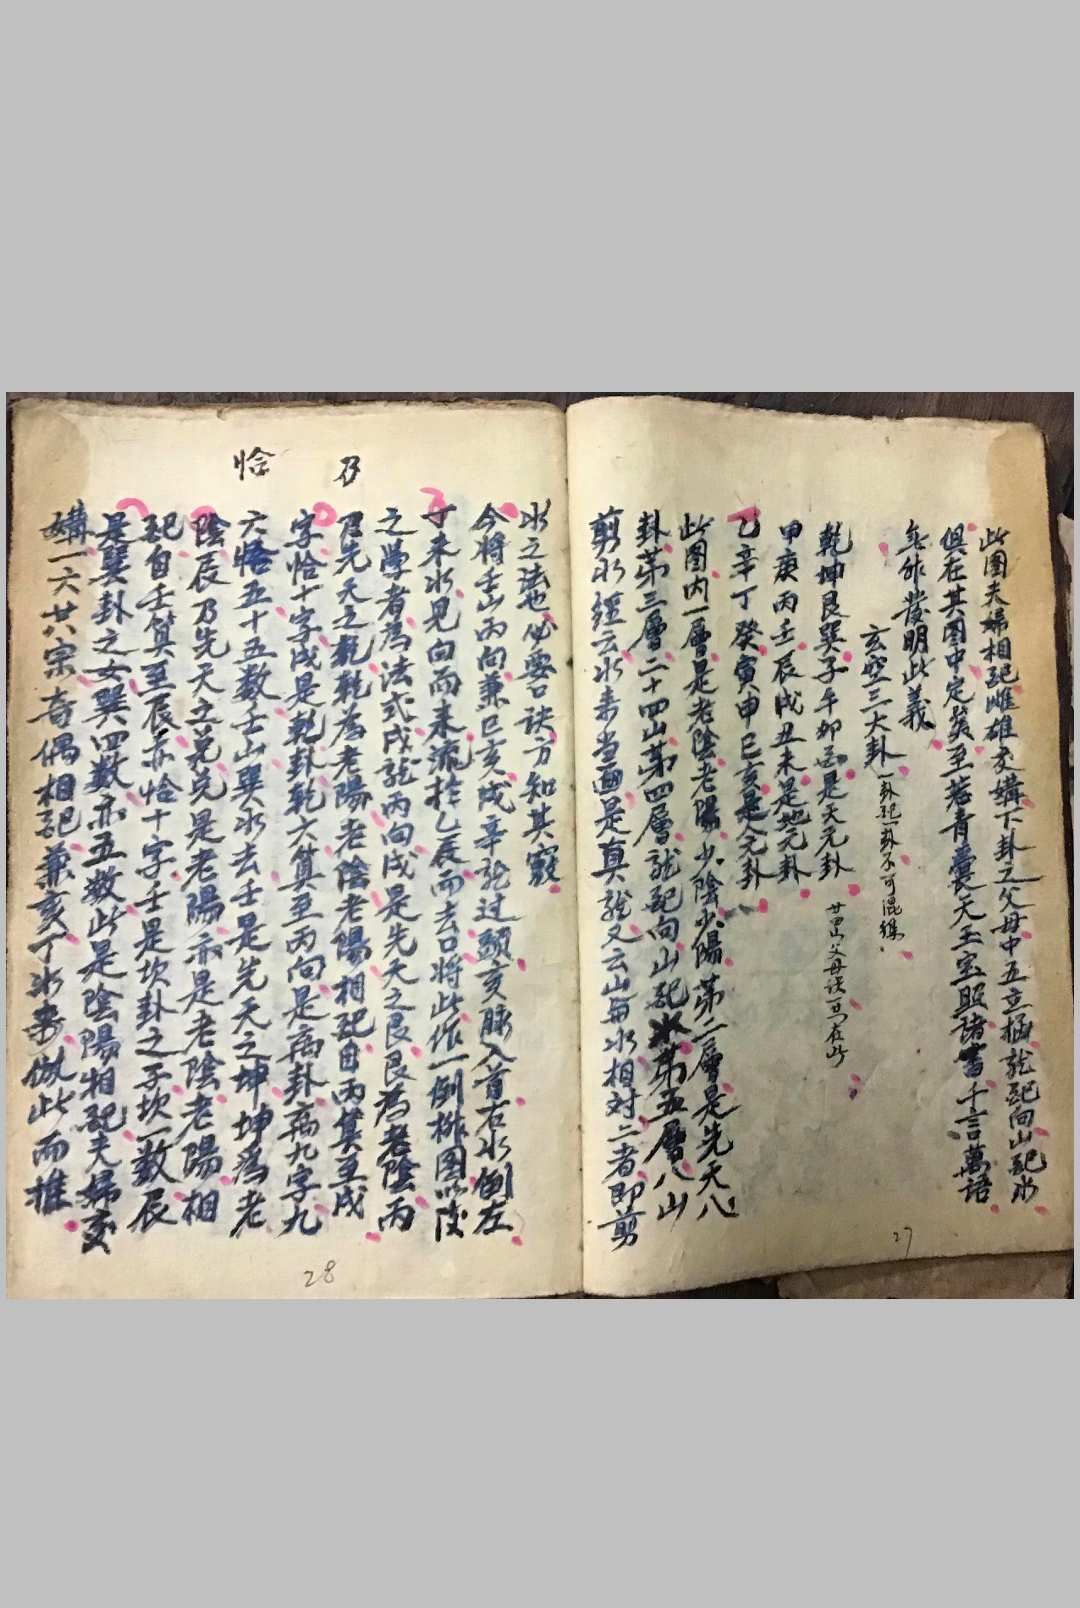 此圖夫婦相配雌雄交媾下卦之父母中五立極龍配向山配水
俱在其圖中定矣至若青囊天玉宝照諸書千言萬語
無能發明此義
玄空三大卦 一卦配一卦不可混錯
乾坤艮巽子午卯酉是天元卦 廿四山父母
甲庚丙壬辰戌丑未是地元卦
乙辛丁癸寅申巳亥是人元卦
此图内一層是老陰老陽少陰少陽第二層是先天八
卦第三層二十四山第四層龍配向山配水第五層八山
剪水經云水来当面是真龍又云山与水相对二者即剪
27
水之法也必要口诀方知其竅
今将壬山丙向兼巳亥戌辛龍过頭亥脉入首右水倒左
丁未水見向而来流於乙辰而去口将此作一倒排图以
之學者為法式戌龍丙向戌是先天之艮艮為老陰丙
乃先天之乾乾為老陽老陰老陽相配自丙算至戌
字恰十字戌是乾卦乾六算至丙向是离卦离九字九
六恰五十五数壬山巽水去壬是先天之坤坤為老
陰辰乃先天之兑兑是老陽亦是老陰老陽相
配自壬算至辰亦恰十字壬是坎卦之子坎一数辰
是巽卦之女巽四数亦五数此是陰陽相配夫婦交
媾一六廿八宗奇偶相配兼亥丁水来倣此而推
乃
恰
28